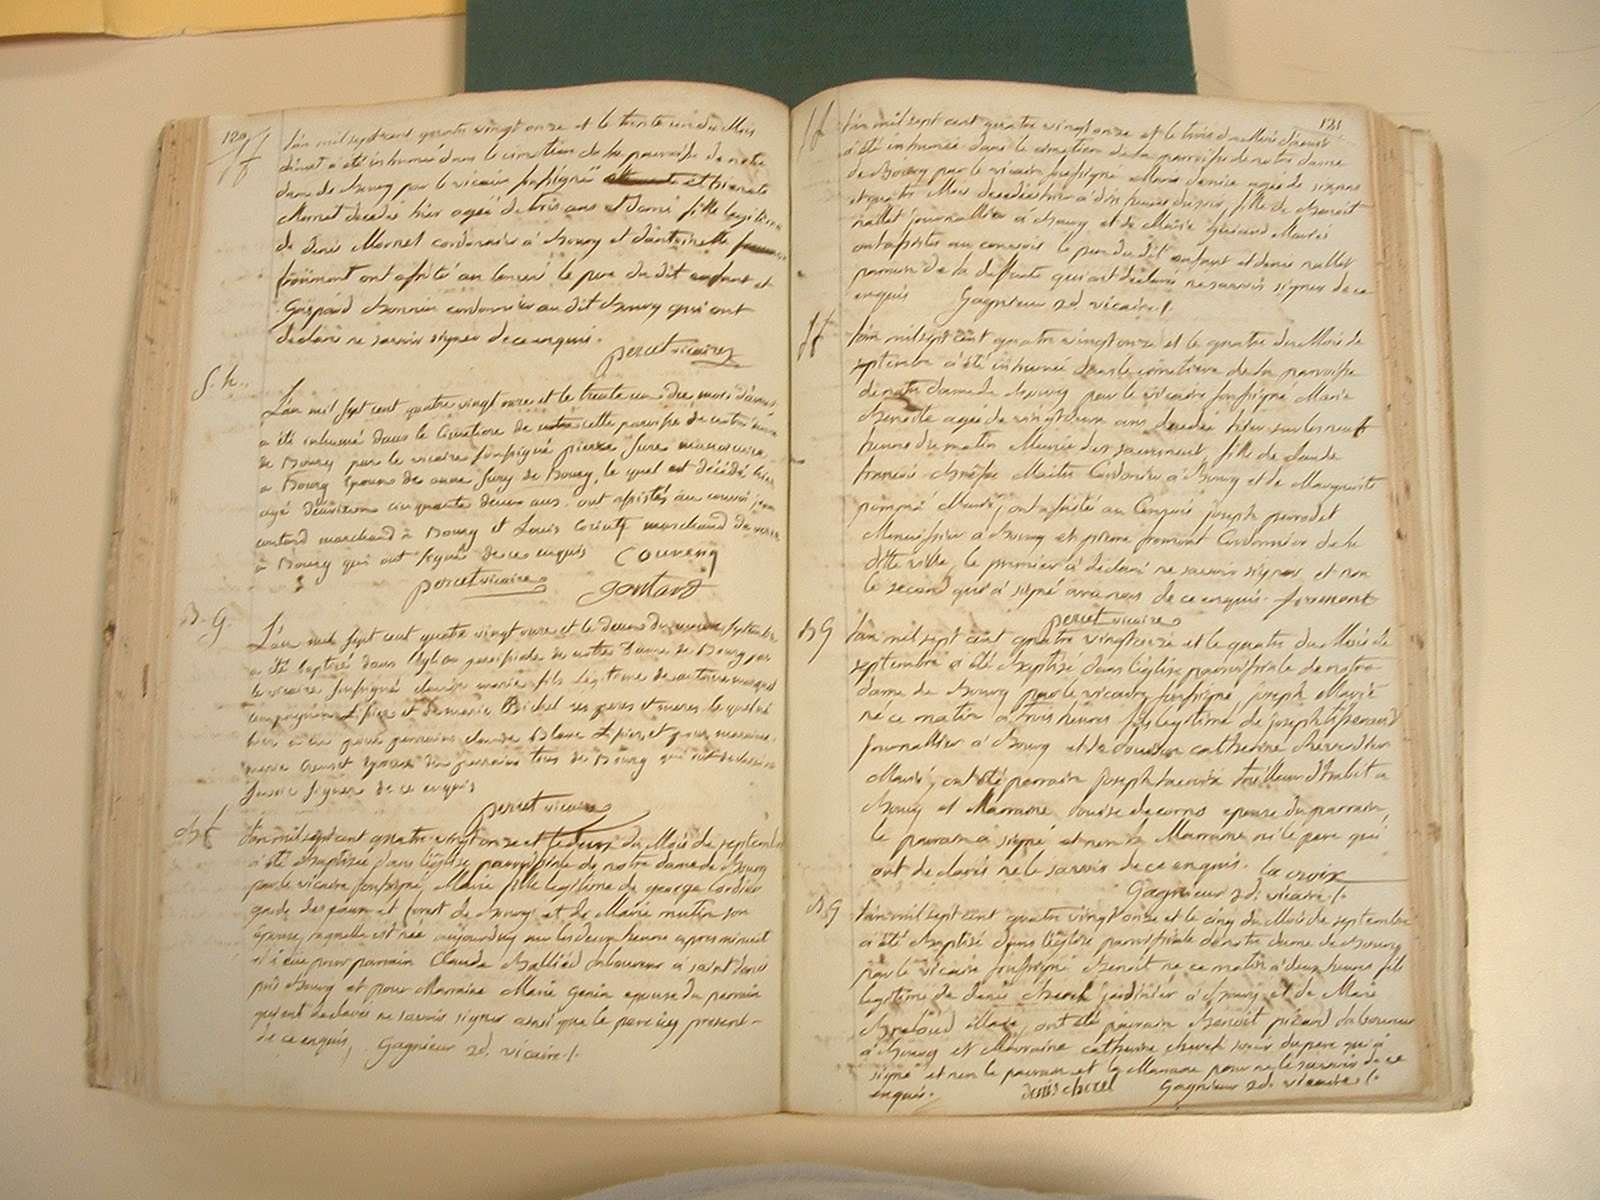 120
S f
l'an mil sept cent quatre vingt onze et le trente un du Mois
d'aout a été inhumée dans le cimetiere de la paroisse de notre
dame de Bourg par le vicaire soussigné
Mornet decedée hier agée de trois ans et demi fille legitime
de denis Mornet cordonnier à Bourg et d'antoinette
froment ont assisté au convoi le pere du dit enfant et
Gaspard Bonnin cordonnier au dit Bourg qui ont
declaré ne savoir signer de ce enquis.
percet vicaire
S. h.
L'an mil sept cent quatre vingt onze et le trente un du mois d'aout
a été inhumé dans le cimetiere de cette paroisse de notre dame
de Bourg par le vicaire soussigné pierre
a Bourg époux de anne de Bourg, le quel est décédé hier
agé d'environ cinquante deux ans. ont assistés au convoi
marchand a Bourg et Louis marchand de
a Bourg qui ont signé de ce enquis
percet vicaire goutard
B. G.
L'an mil sept cent quatre vingt onze et le deux du mois septembre
a été baptisé dans l'église paroissiale de notre Dame de Bourg par
le vicaire soussigné claude marie fils legitime de antoine
compagnon et de marie Bichel ses peres et meres le quel né
hier a eu pour parrain claude Blanc et pour marraine
marie épouse du parrain tous de Bourg qui ont declaré ne
savoir signer de ce enquis
percet vicaire
B f
l'an mil sept cent quatre vingt onze et le deux du Mois de septembre
a été Baptisée dans l'église paroissiale de notre dame de Bourg
par le vicaire soussigné, Marie fille legitime de george Cordier
garde des eaux et foret de Bourg et de Marie mutin son
épouse, laquelle est née aujourdhuy sur les deux heures apres minuit
et a eu pour parrain Claude Ballied laboureur a saint denis
près Bourg et pour Marraine Marie genin epouse du parrain
qui ont declarés ne savoir signer ainsi que le pere icy present
de ce enquis, Gagnieur 2d. vicaire /.
121
S f
l'an mil sept cent quatre vingt onze et le trois du Mois
a été inhumée dans le cimetiere de la paroisse de notre dame
de Bourg par le vicaire soussigné Marie denise agée de six ans
et quatre Mois decedée hier a dix heures du soir, fille de Benoit
nallet journallier a Bourg et de Marie guicard Mariés
ont assistés au convois le pere du dit enfant et denis nallet
parrain de la deffunte qui ont declarés ne savoir signer de ce
enquis Gagnieur 2d. vicaire /.
S f
l'an mil sept cent quatre vingt onze et le quatre du Mois de
septembre a été inhumée dans le cimetiere de la paroisse
de notre dame de Bourg par le vicaire soussigné Marie
Benoite agée de vingt deux ans decedée hier sur les neuf
heures du matin Munie des sacrement, fille de claude
francois Maitre Cordonnier a Bourg et de Marguerite
Mariés, ont assisté au Convois joseph perrodet
Menuisier a Bourg et pierre froment Cordonnier de la
ditte ville, le premier a declaré ne savoir signer, et non
le second qui a signé avec nous de ce enquis. froment
percet vicaire
B G
l'an mil sept cent quatre vingt onze et le quatre du Mois de
septembre a été Baptisé dans l'église paroissiale de notre
dame de Bourg par le vicaire soussigné, joseph Marie
né ce matin a trois heures fils legitime de joseph
journallier a Bourg et de catherine
Mariés, ont été parrain joseph lacroix tailleur d'habit a
Bourg et Marraine Louise decorps epouse du parrain,
le parrain a signé et non la Marraine ni le pere qui
ont declarés ne le savoir de ce enquis. la croix
Gagnieur 2d. vicaire /.
B G
l'an mil sept cent quatre vingt onze et le cinq du Mois de septembre
a été Baptisé dans l'église paroissiale de notre dame de Bourg
par le vicaire soussigné Benoit né ce matin a deux heures fils
legitime de denis jardinier a Bourg et de Marie
Mariés, ont été parrain Benoit picard laboureur
a Bourg et Marraine catherine soeur du pere qui a
signé et non le parrain et la Marraine pour ne le savoir de ce
enquis. denis chorel Gagnieur 2d. vicaire /.